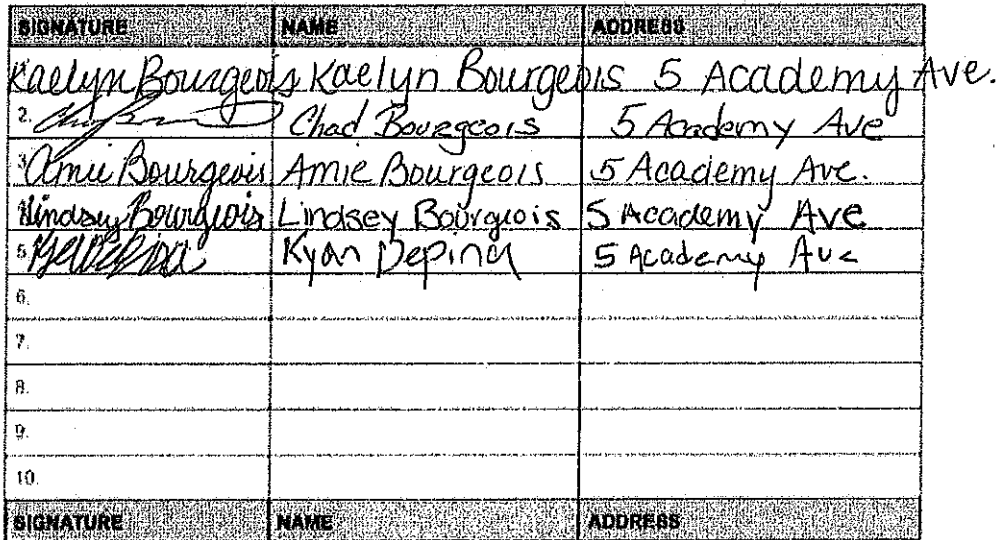 SIGNATURE NAME ADDRESS
Kaelyn Bourgeois Kaelyn Bourgeois 5 Academy Ave.
2. Chad Bourgeois 5 Academy Ave
3. Amie Bourgeois Amie Bourgeois 5 Academy Ave.
Lindsey Bourgeois Lindsey Bourgiois 5 Academy Ave
5. Kyan Depina 5 Academy Ave
6.
7.
8.
9.
10.
SIGNATURE NAME ADDRESS